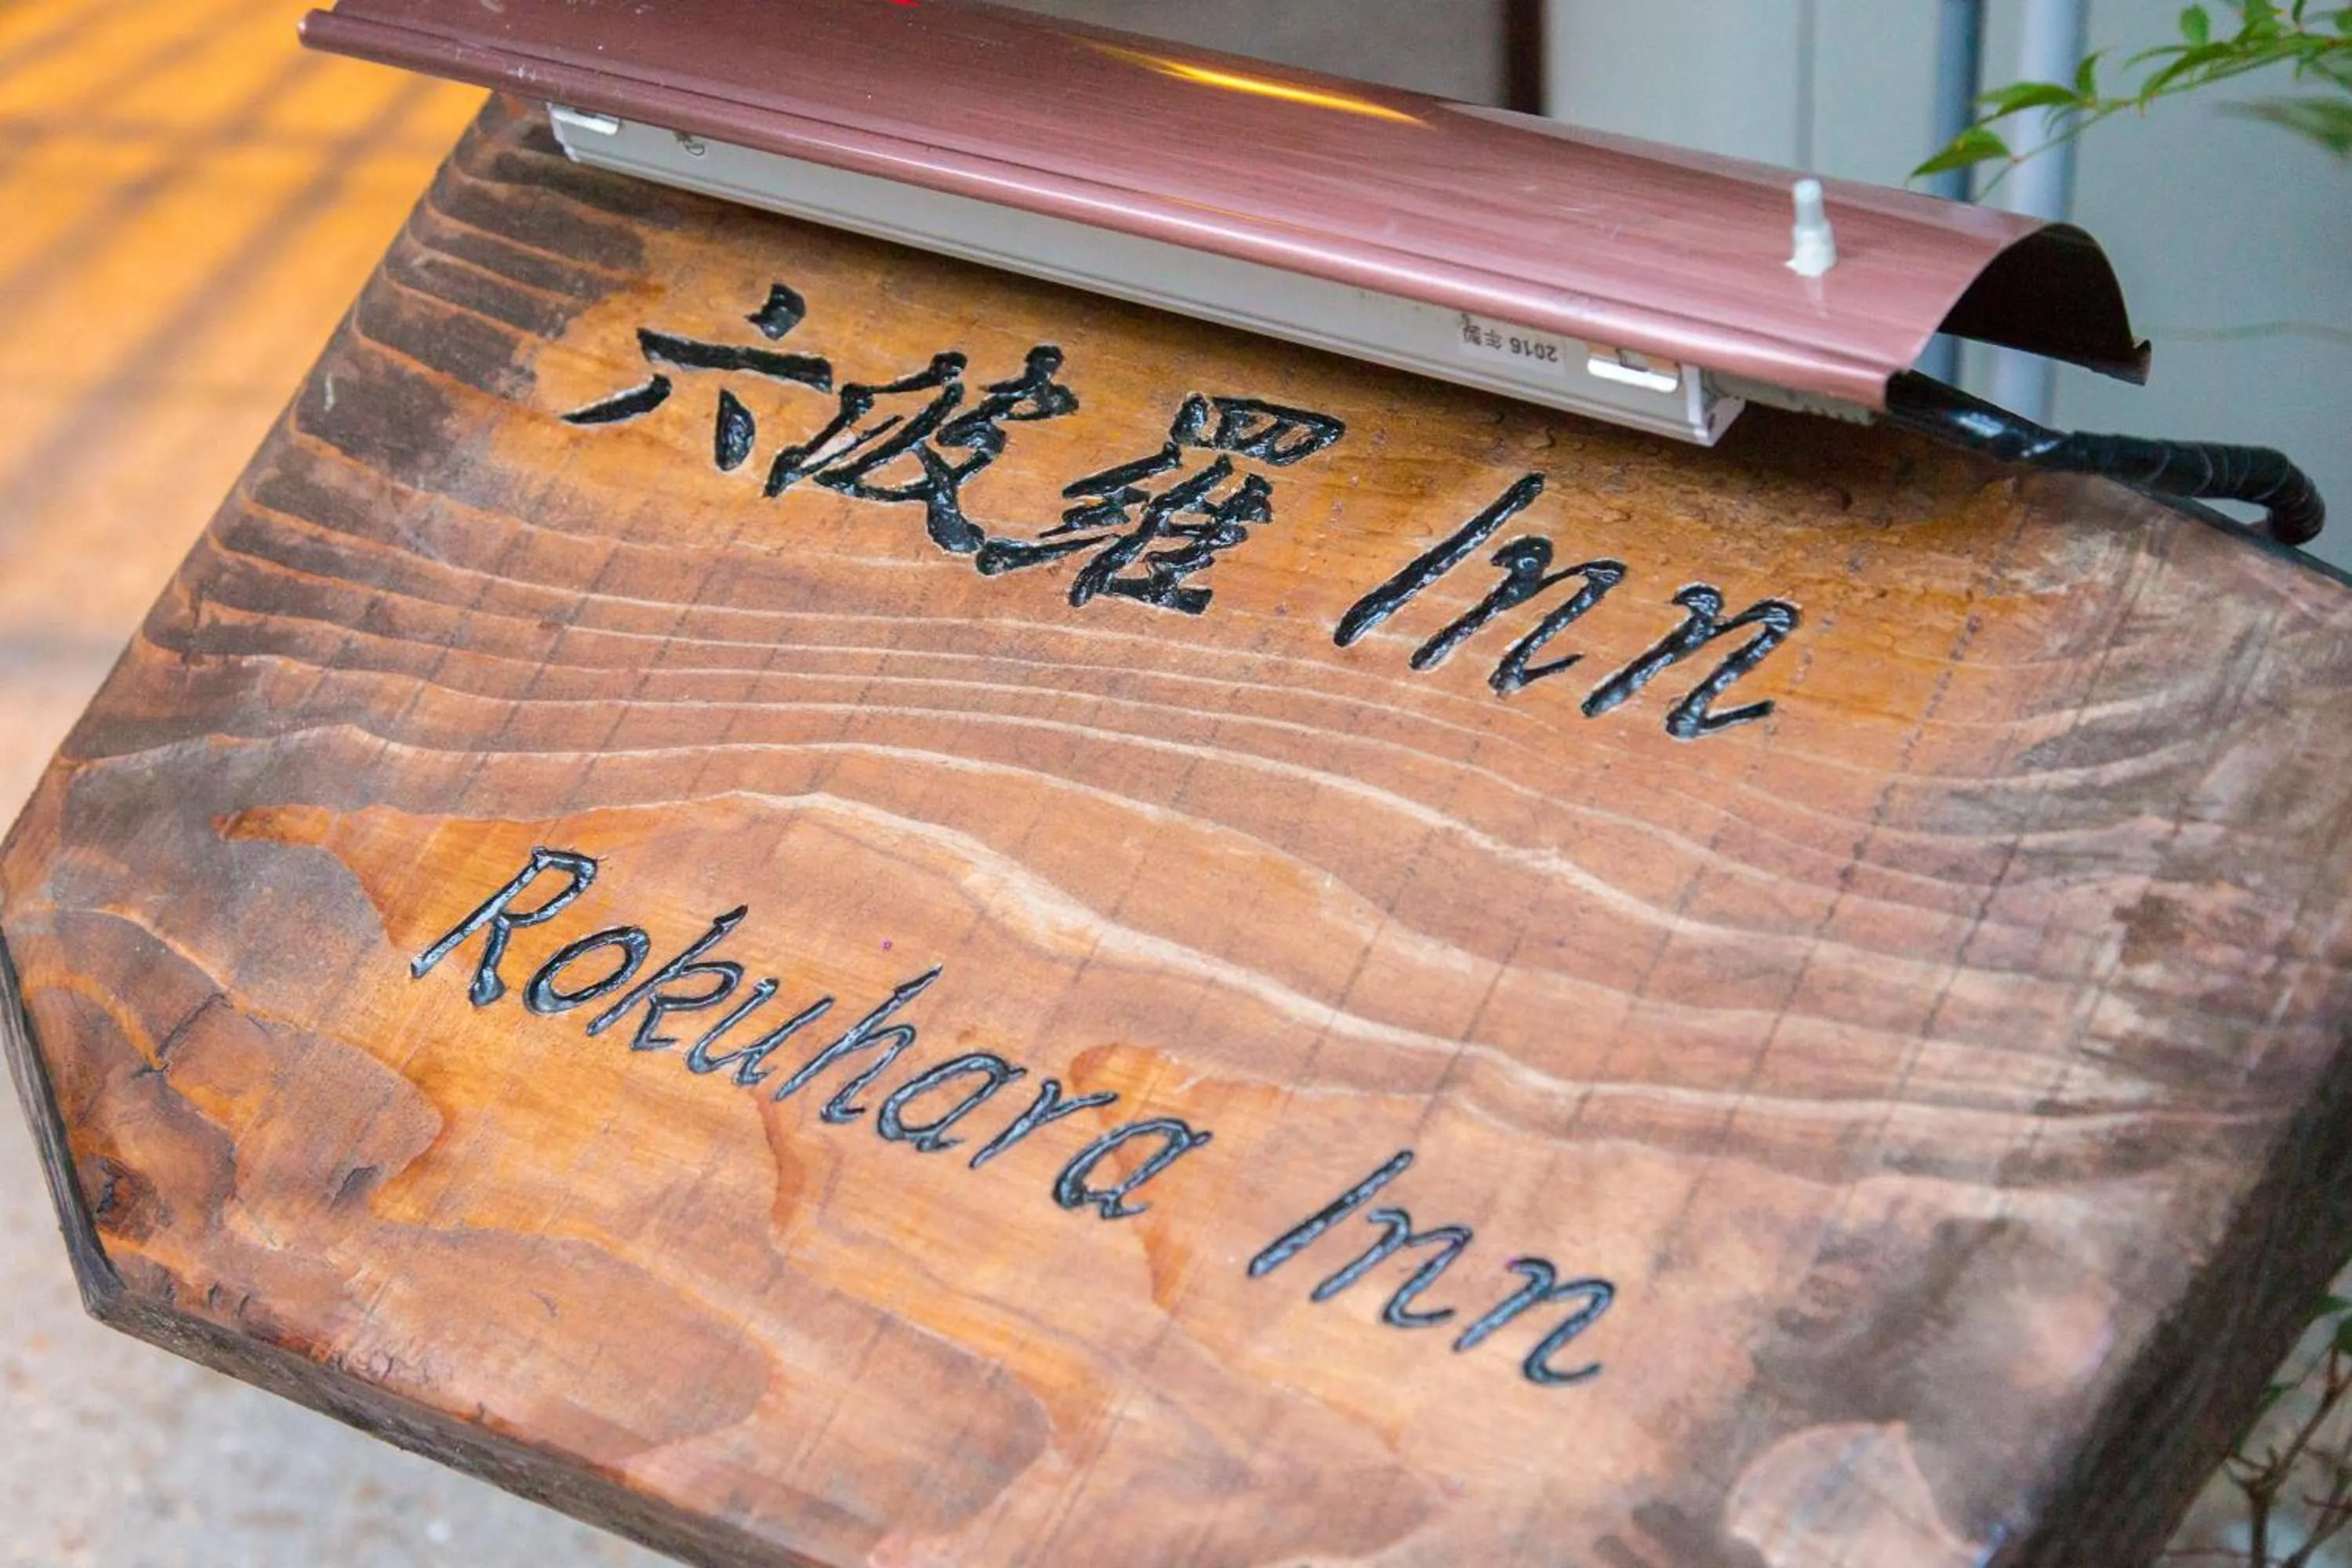 2016 年製
六波羅 Inn
Rokuhara Inn